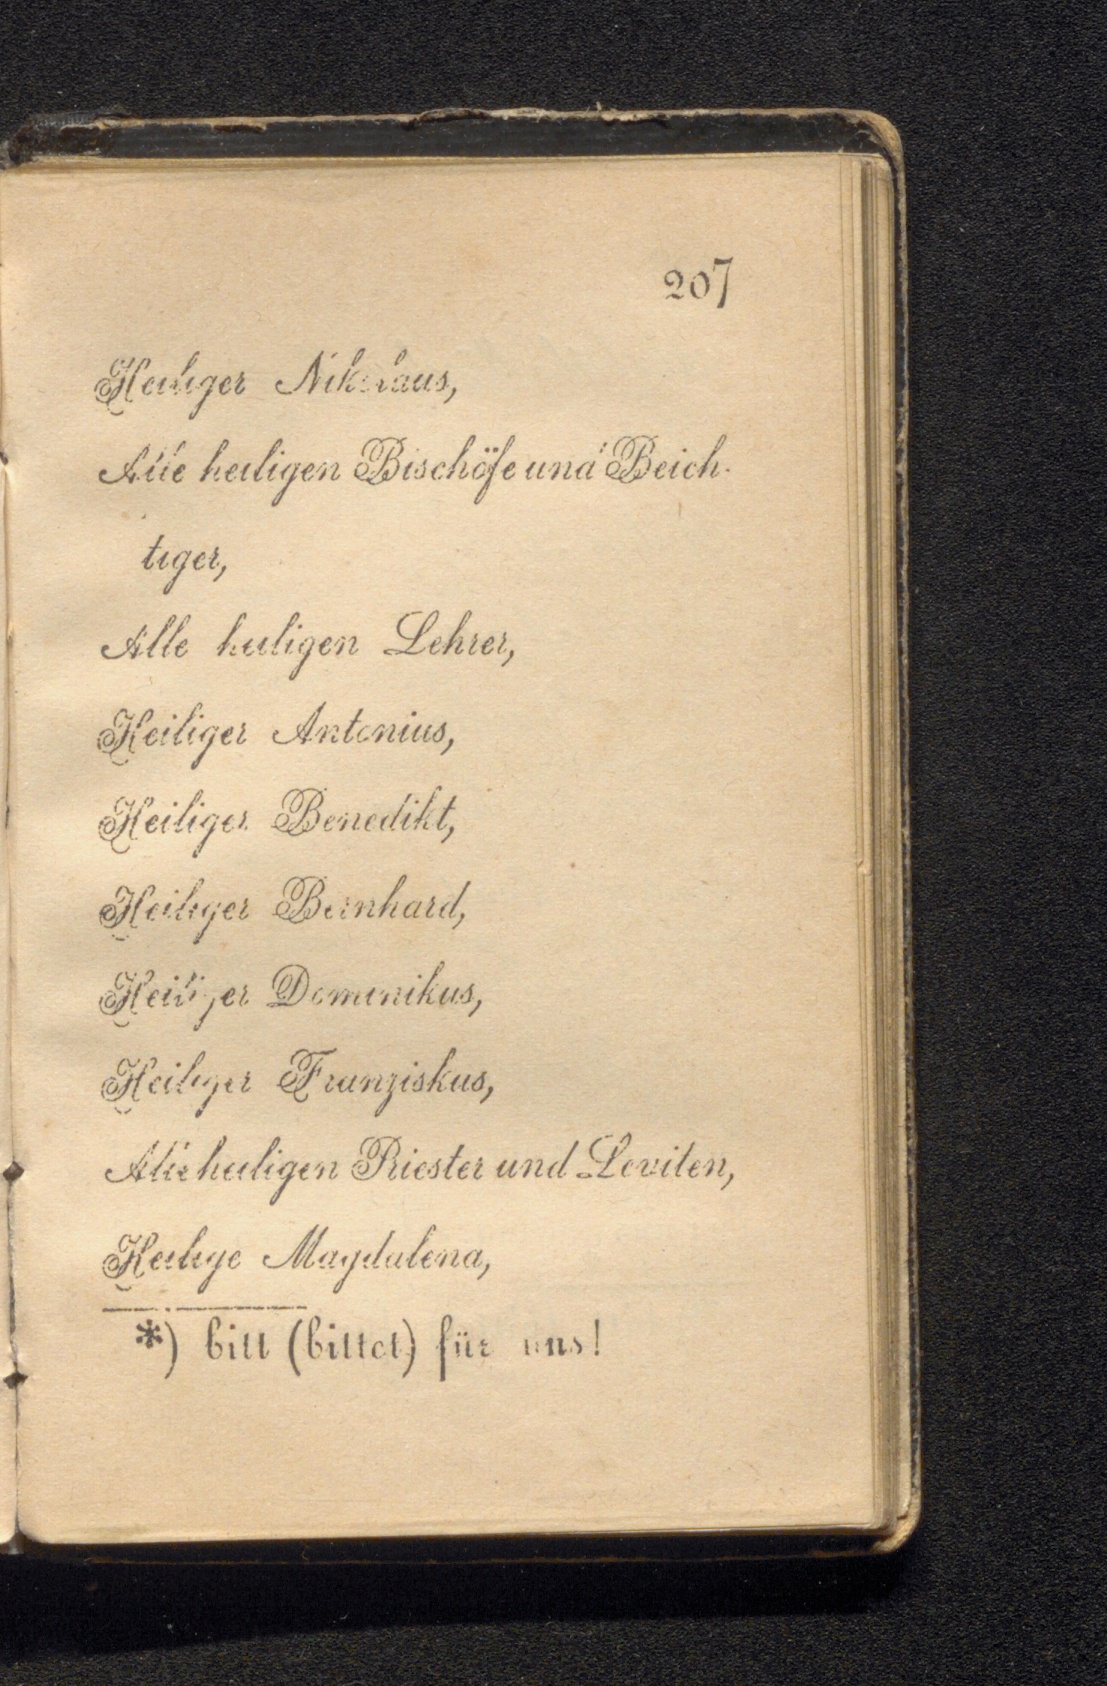 207
Heiliger Nikolaus,
Alle heiligen Bischöfe und Beich-
tiger,
Alle heiligen Lehrer,
Heiliger Antonius,
Heiliger Benedikt,
Heiliger Bernhard,
Heiliger Dominikus,
Heiliger Franziskus,
Alle heiligen Priester und Leviten,
Heilige Magdalena,
*) bitt (bittet) für uns!